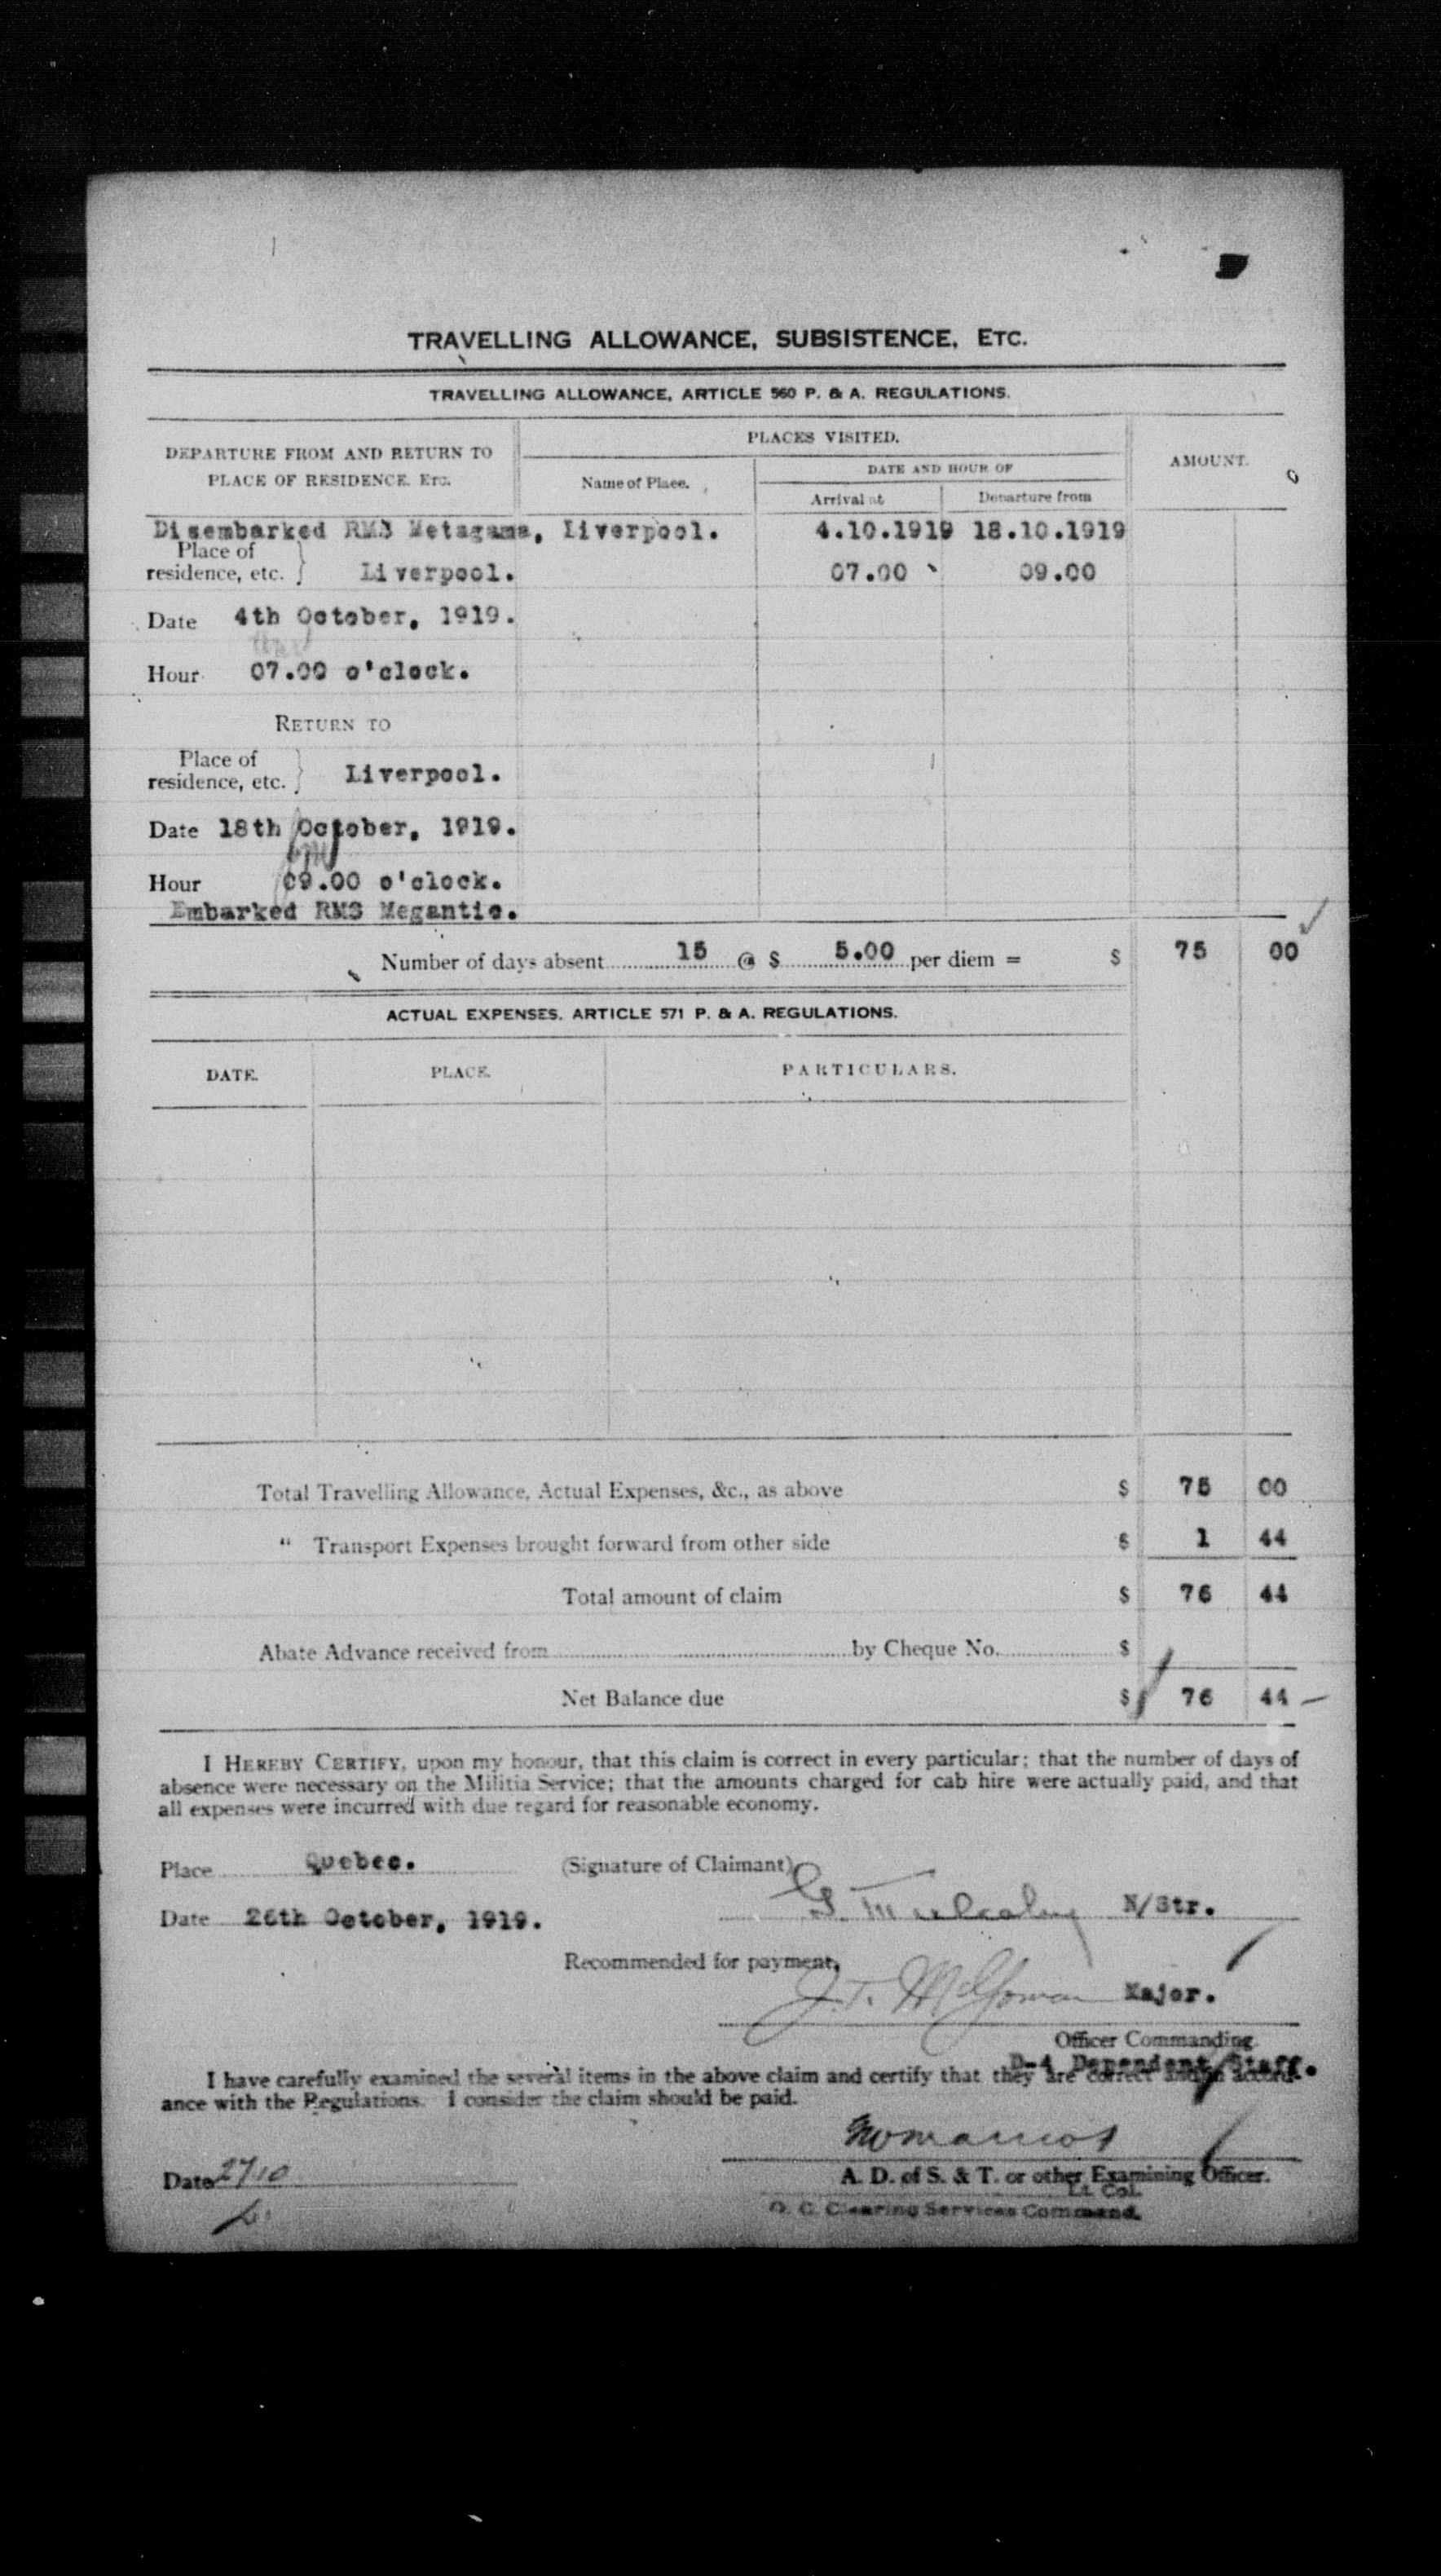 TRAVELLING ALLOWANCE, SUBSISTENCE, ETC.
TRAVELLING ALLOWANCE, ARTICLE 560 P. & A. REGULATIONS.
DEPARTURE FROM AND RETURN TO
PLACE OF RESIDENCE. ETC.
PLACES VISITED.
AMOUNT.
Name of Place.
DATE AND HOUR OF
Arrival at
Departure from
Disembarked RMS Metagama, Liverpool. 4.10.1919 18.10.1919
Place of
residence, etc. } Liverpool. 07.00 09.00
Date 4th October, 1919.
Hour 07.00 o'clock.
RETURN TO
Place of
residence, etc. } Liverpool.
Date 18th October, 1919.
Hour 09.00 o'clock.
Embarked RMS Megantic.
Number of days absent 15 @ $ 5.00 per diem = $ 75 00
ACTUAL EXPENSES. ARTICLE 571 P. & A. REGULATIONS.
DATE. PLACE. PARTICULARS.
Total Travelling Allowance, Actual Expenses, &c., as above $ 75 00
" Transport Expenses brought forward from other side $ 1 44
Total amount of claim $ 76 44
Abate Advance received from by Cheque No. $
Net Balance due $ 76 44
I HEREBY CERTIFY, upon my honour, that this claim is correct in every particular; that the number of days of
absence were necessary on the Militia Service; that the amounts charged for cab hire were actually paid, and that
all expenses were incurred with due regard for reasonable economy.
Place Quebec. (Signature of Claimant)
Date 26th October, 1919. G. Mulcahy N/Str.
Recommended for payment,
J.T. McGowan Major.
Officer Commanding
D-4 Dependent Staff.
I have carefully examined the several items in the above claim and certify that they are correct and in accord-
ance with the Regulations. I consider the claim should be paid.
Date 27/10
A. D. of S. & T. or other Examining Officer.
Lt. Col.
O. C. Clearing Services Command.